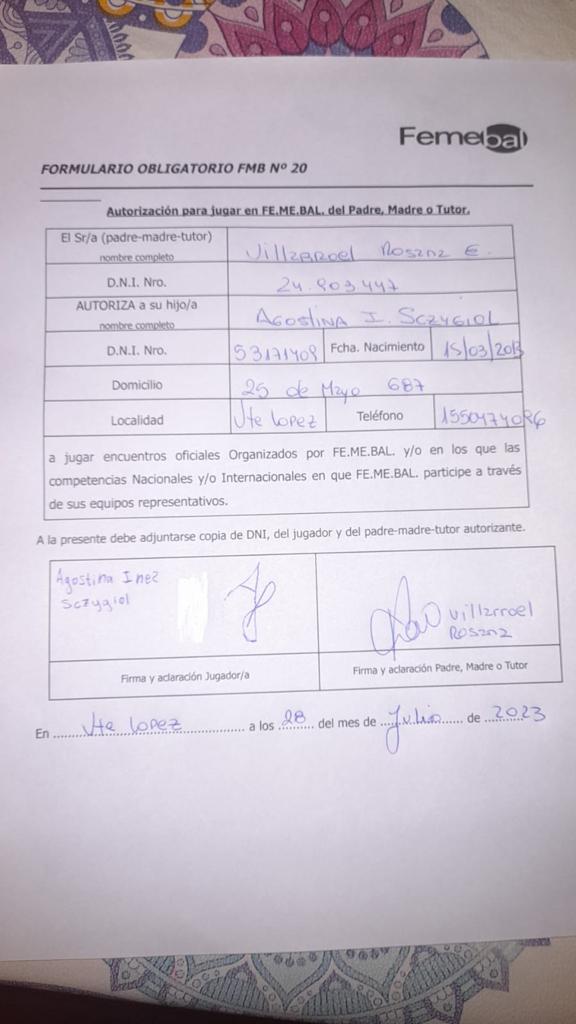 Femebal
FORMULARIO OBLIGATORIO FMB Nº 20
Autorización para jugar en FE.ME.BAL. del Padre, Madre o Tutor.
El Sr/a (padre-madre-tutor)
nombre completo
Villarroel Rosana E.
D.N.I. Nro.
24.903.447
AUTORIZA a su hijo/a
nombre completo
Agostina I. Sczygiol
D.N.I. Nro.
53171409
Fcha. Nacimiento
15/03/2013
Domicilio
25 de Mayo 687
Localidad
Vte Lopez
Teléfono
a jugar encuentros oficiales Organizados por FE.ME.BAL. y/o en los que las
competencias Nacionales y/o Internacionales en que FE.ME.BAL. participe a través
de sus equipos representativos.
A la presente debe adjuntarse copia de DNI, del jugador y del padre-madre-tutor autorizante.
Agostina Inez
Sczygiol
Villarroel
Rosana
Firma y aclaración Jugador/a
Firma y aclaración Padre, Madre o Tutor
En Vte Lopez a los 28 del mes de Julio de 2023